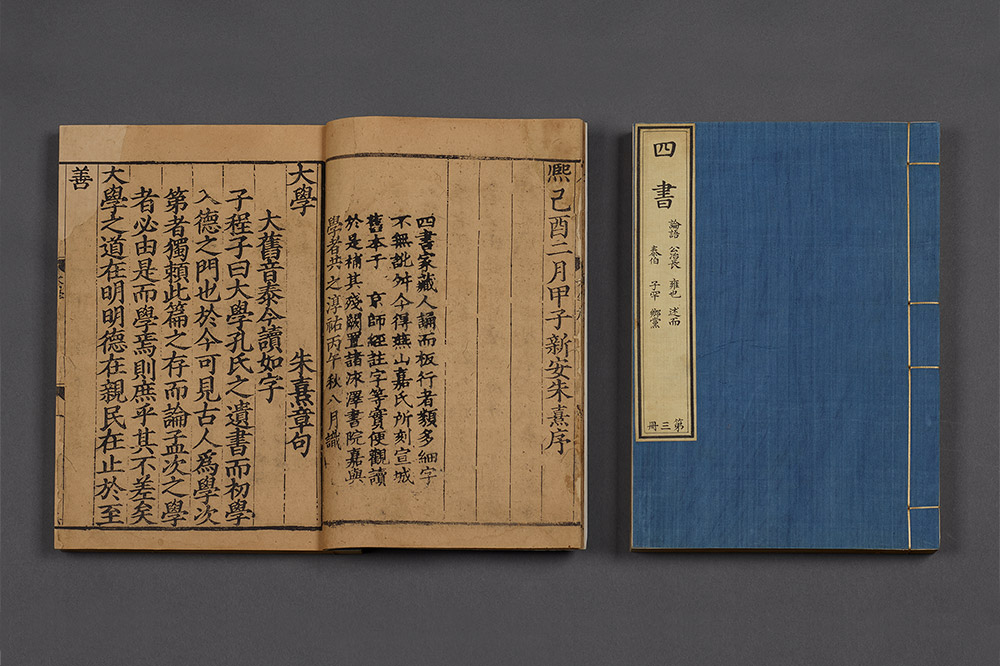 熈己酉二月甲子新安朱熹序
四書家藏人誦而板行者類多細字
不無訛舛今得燕山嘉氏所刻宣城
舊本于 京師經註字等實便觀讀
於是補其殘闕置諸泳澤書院嘉與
學者共之淳祐丙午秋八月識
大學 朱熹章句
大舊音泰今讀如字
子程子曰大學孔氏之遺書而初學
入德之門也於今可見古人爲學次
第者獨頼此篇之存而論孟次之學
者必由是而學焉則庶乎其不差矣
大學之道在明明德在親民在止於至
善
四書
論語 公冶長 雍也 述而
泰伯 子罕 鄉黨
第三冊